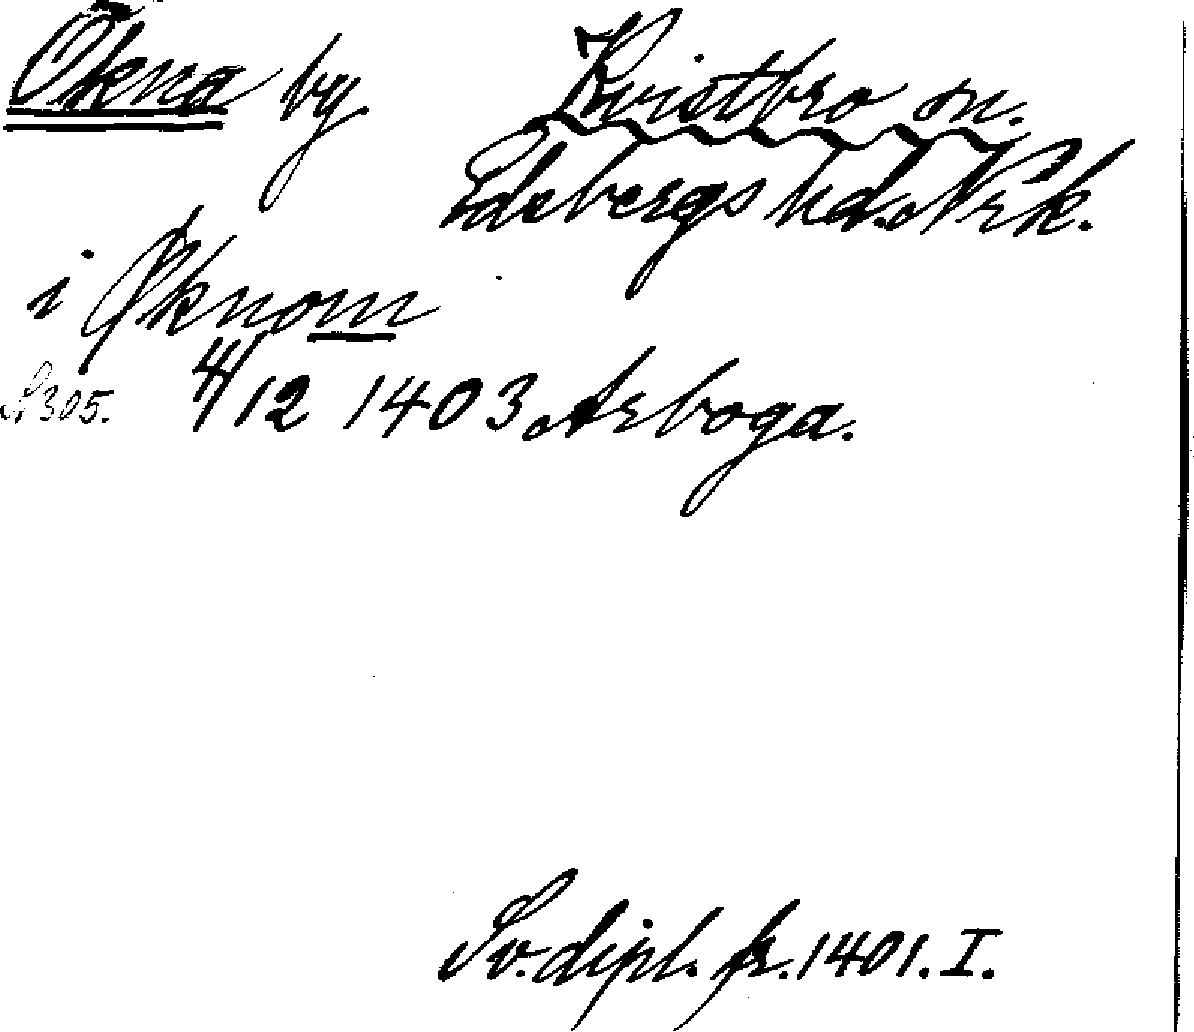 Ökna by Kvistbro sn.
Edsbergs hd. Nrk.
i Øknom
S. 305. 4/12 1403 Arboga.
Sv. dipl. fr. 1401. I.